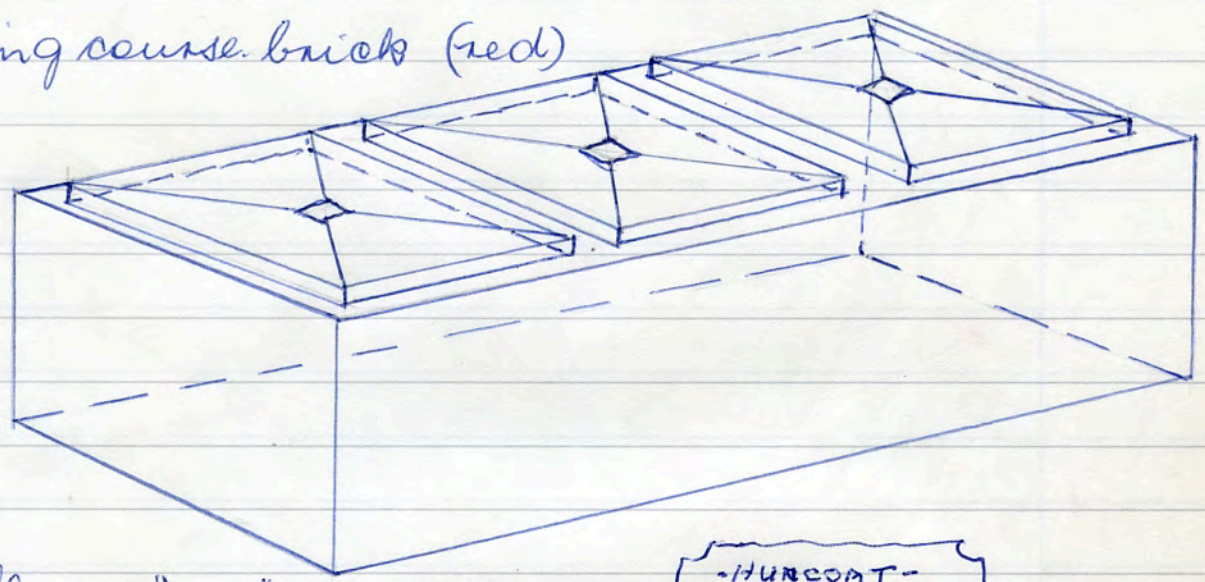 ing course brick (red)
-HUNCOAT-